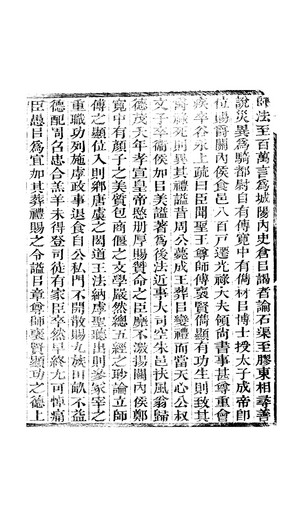 師法至百萬言爲城陽內史倉㠯謁者論石渠至膠東相尋善
說災異爲騎都尉自有傳寬中有儁材㠯博士授太子成帝卽
位賜爵關內侯食邑八百戶遷光祿大夫領尚書事甚尊重會
疾卒谷永上疏曰臣聞聖王尊師傅襃賢儁顯有功生則致其
爵祿死則異其禮諡昔周公薨成王葬㠯變禮而當天心公叔
文子卒衞侯加㠯美諡著爲後法近事大司空朱邑扶風翁歸
德茂夭年孝宣皇帝愍冊厚賜贊命之臣靡不激揚關內侯鄭
寬中有顏子之美質包商偃之文學嚴然總五經之眇論立師
傅之顯位入則鄉唐虞之閎道王法納虖聖聽出則參冢宰之
重職功列施虖政事退食自公私門不開散賜九族田畝不益
德配周召忠合羔羊未得登司徒有家臣卒然早終尤可悼痛
臣愚㠯爲宜加其葬禮賜之令諡㠯章尊師襃賢顯功之德上